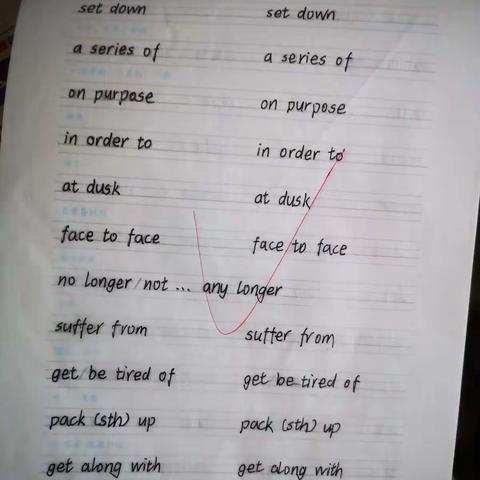 set down set down
a series of a series of
on purpose on purpose
in order to in order to
at dusk at dusk
face to face face to face
no longer/not ... any longer
suffer from suffer from
get/be tired of get be tired of
pack (sth) up pack (sth) up
get along with get along with